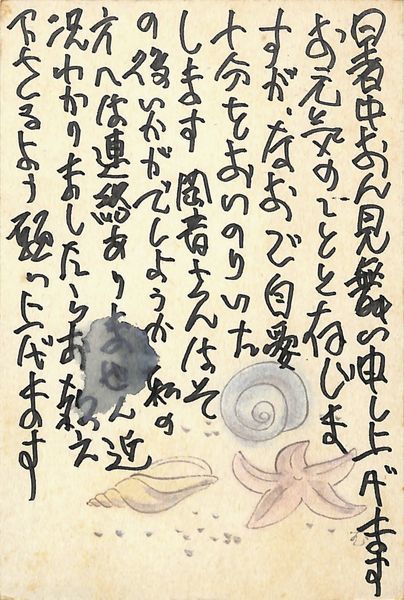 暑中お見舞い申し上げます
お元気のことと存じま
すが、なおご自愛
十分をおいのりいた
します 岡者さんはそ
の後いかがでしようか 私の
方へは連絡ありません 近
況わかりましたらお教え
下さるよう願い上げます